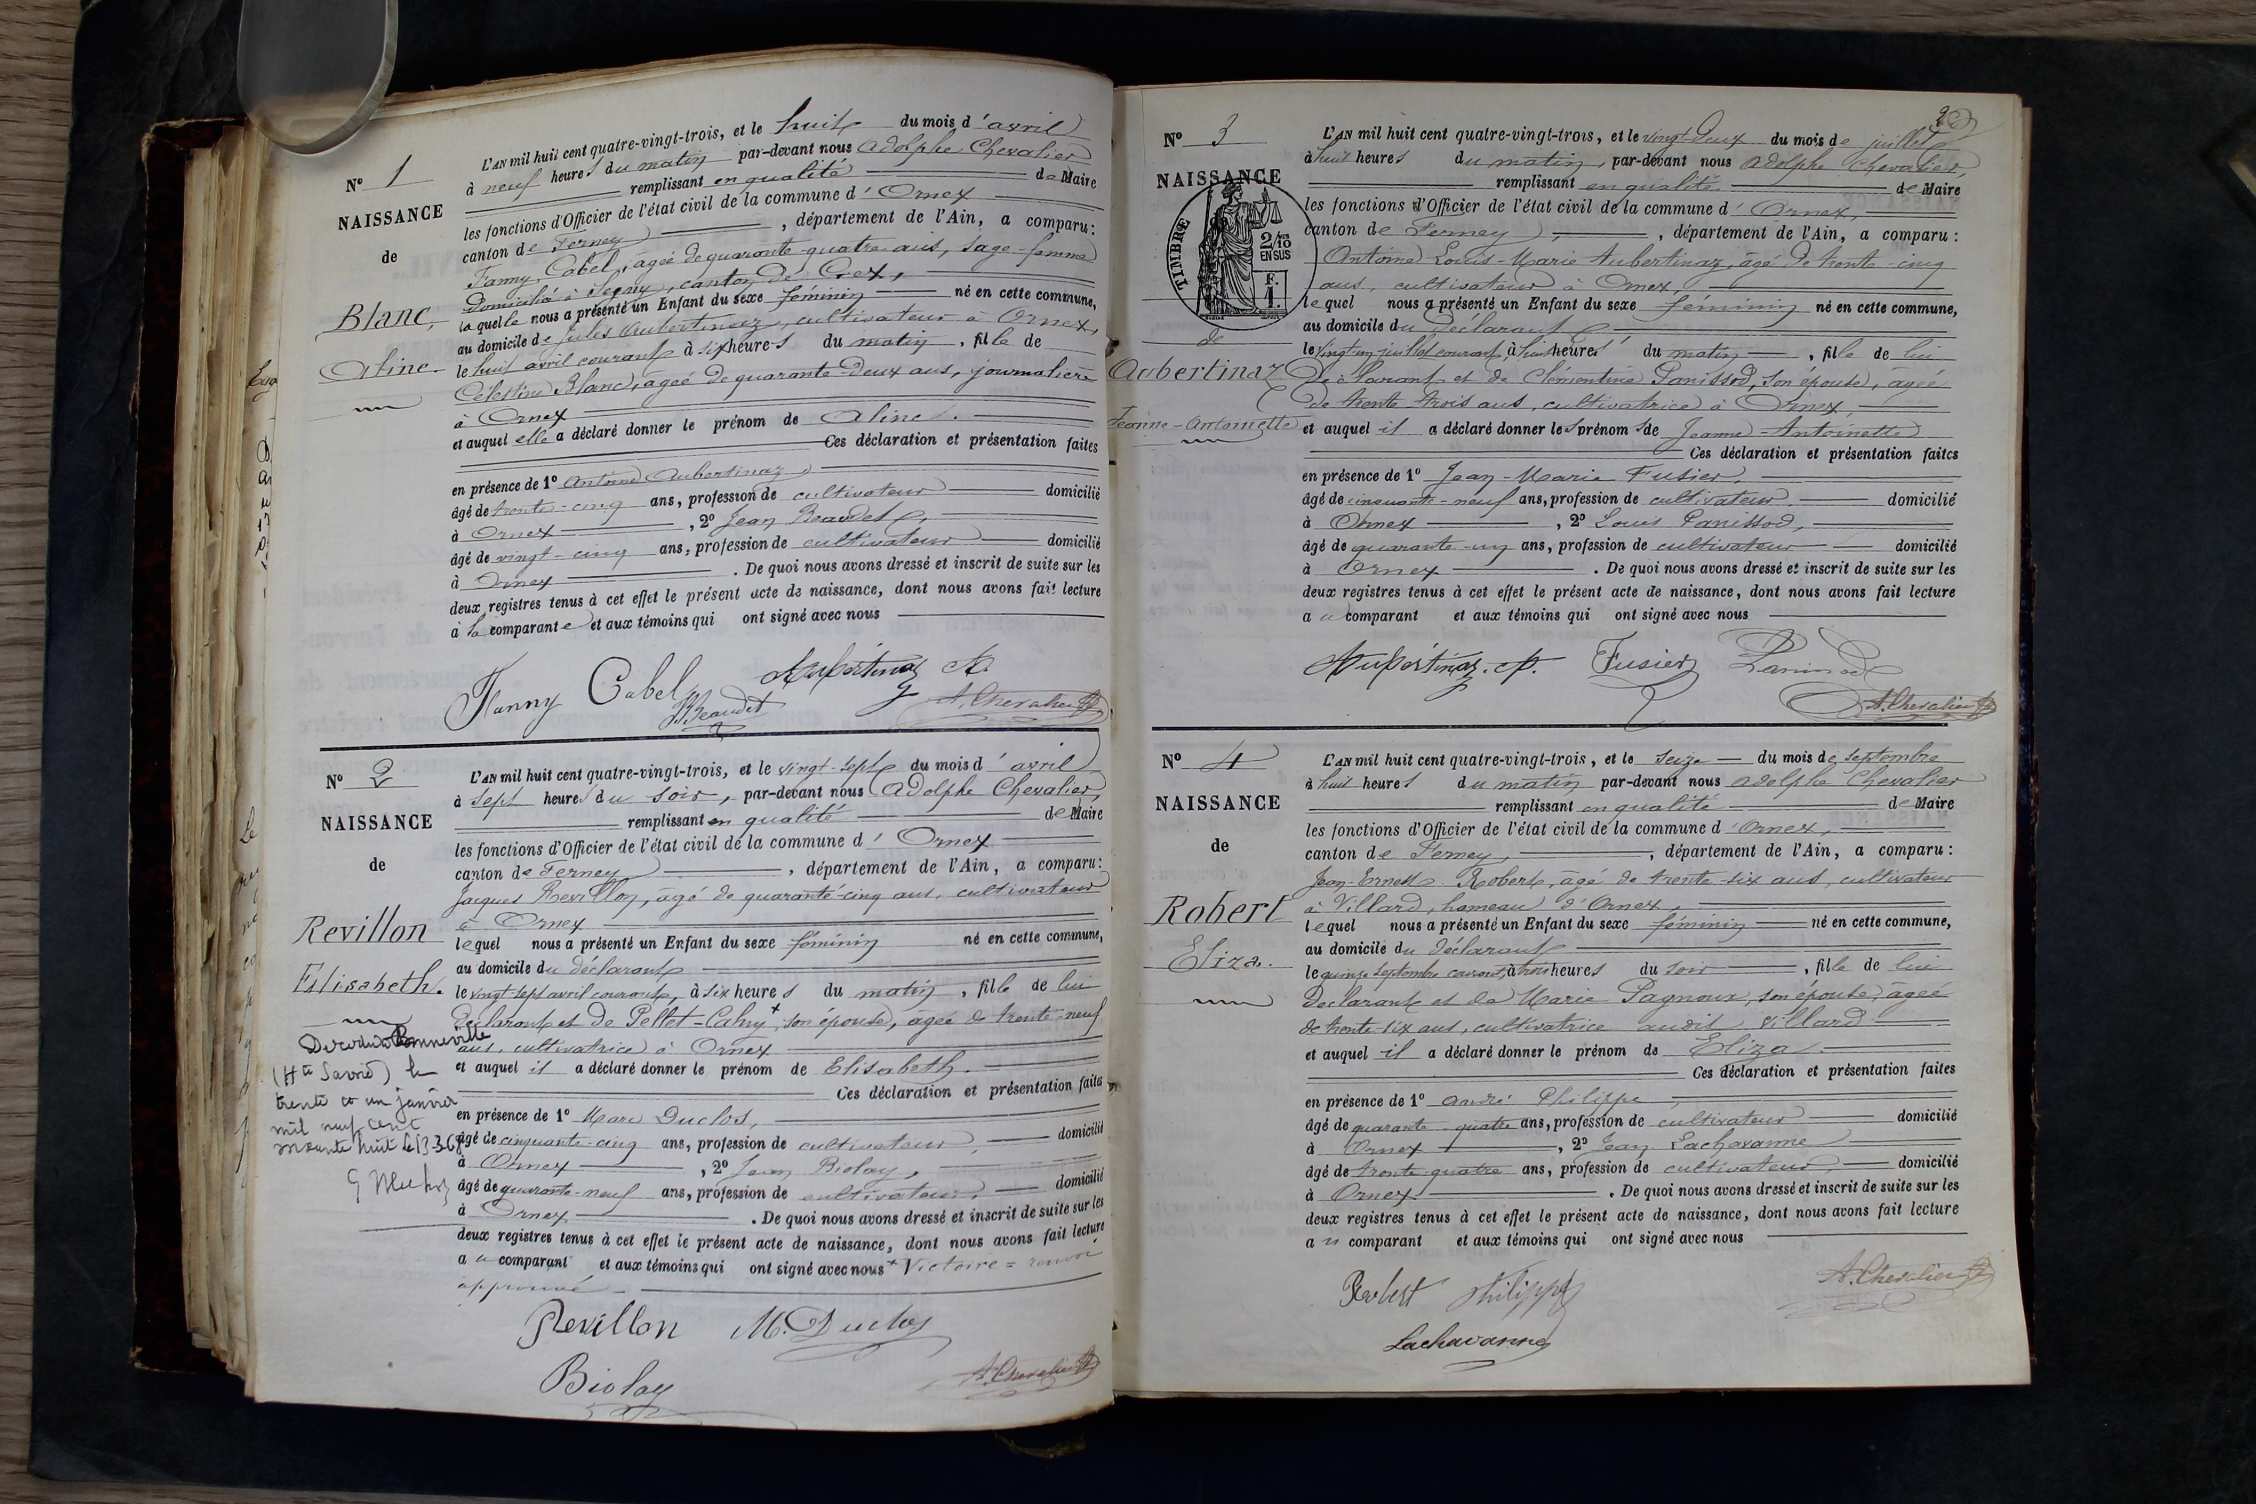 N° 1
NAISSANCE
de
Blanc,
Aline.
L'AN mil huit cent quatre-vingt-trois, et le huit du mois d'avril
à neuf heures du matin par-devant nous Adolphe Chevalier
remplissant en qualité de Maire
les fonctions d'Officier de l'état civil de la commune d'Ornex
canton de Ferney, département de l'Ain, a comparu:
Fanny Cabel, âgée de quarante-quatre ans, sage-femme
domiciliée à Segny, canton de Gex,
laquelle nous a présenté un Enfant du sexe féminin né en cette commune,
au domicile de Jules Aubertinaz, cultivateur à Ornex,
le huit avril courant à six heures du matin, fille de
Célestine Blanc, âgée de quarante-deux ans, journalière
à Ornex
et auquel elle a déclaré donner le prénom de Aline.
Ces déclaration et présentation faites
en présence de 1° Antoine Aubertinaz,
âgé de trente-cinq ans, profession de cultivateur domicilié
à Ornex, 2° Jean Beaudet,
âgé de vingt-cinq ans, profession de cultivateur domicilié
à Ornex. De quoi nous avons dressé et inscrit de suite sur les
deux registres tenus à cet effet le présent acte de naissance, dont nous avons fait lecture
à la comparante et aux témoins qui ont signé avec nous
Fanny Cabel Aubertinaz A.
J. Beaudet A. Chevalier
N° 2
NAISSANCE
de
Revillon
Elisabeth.
Décédée à Bonneville
(Hte Savoie) le
trente et un janvier
mil neuf cent
soixante huit le 13-3-68
L'AN mil huit cent quatre-vingt-trois, et le vingt-sept du mois d'avril
à sept heures du soir, par-devant nous Adolphe Chevalier,
remplissant en qualité de Maire
les fonctions d'Officier de l'état civil de la commune d'Ornex
canton de Ferney, département de l'Ain, a comparu:
Jacques Revillon, âgé de quarante-cinq ans, cultivateur
à Ornex
lequel nous a présenté un Enfant du sexe féminin né en cette commune,
au domicile du déclarant
le vingt-sept avril courant, à six heures du matin, fille de lui
déclarant et de Pellet-Cahny+, son épouse, âgée de trente-neuf
ans, cultivatrice à Ornex
et auquel il a déclaré donner le prénom de Elisabeth.
Ces déclaration et présentation faites
en présence de 1° Marc Duclos,
âgé de cinquante-cinq ans, profession de cultivateur, domicilié
à Ornex, 2° Jean Biolay,
âgé de quarante-neuf ans, profession de cultivateur, domicilié
à Ornex. De quoi nous avons dressé et inscrit de suite sur les
deux registres tenus à cet effet le présent acte de naissance, dont nous avons fait lecture
au comparant et aux témoins qui ont signé avec nous + Victoire = renvoi
approuvé
Revillon M. Duclos
Biolay A. Chevalier
N° 3
NAISSANCE
TIMBRE
2/10
EN SUS
F.
1.
de
Aubertinaz
Jeanne-Antoinette
L'AN mil huit cent quatre-vingt-trois, et le vingt-deux du mois de juillet
à huit heures du matin, par-devant nous Adolphe Chevalier,
remplissant en qualité de Maire
les fonctions d'Officier de l'état civil de la commune d'Ornex,
canton de Ferney, département de l'Ain, a comparu:
Antoine Louis-Marie Aubertinaz, âgé de trente-cinq
ans, cultivateur à Ornex,
lequel nous a présenté un Enfant du sexe féminin né en cette commune,
au domicile du déclarant
le vingt-un juillet courant, à huit heures du matin, fille de lui
déclarant et de Clémentine Panissod, son épouse, âgée
de trente-trois ans, cultivatrice à Ornex,
et auquel il a déclaré donner les prénoms de Jeanne-Antoinette
Ces déclaration et présentation faites
en présence de 1° Jean-Marie Fusier,
âgé de cinquante-neuf ans, profession de cultivateur, domicilié
à Ornex, 2° Louis Panissod,
âgé de quarante-un ans, profession de cultivateur domicilié
à Ornex. De quoi nous avons dressé et inscrit de suite sur les
deux registres tenus à cet effet le présent acte de naissance, dont nous avons fait lecture
au comparant et aux témoins qui ont signé avec nous
Aubertinaz. A. Fusier Panissod
A. Chevalier
N° 4
NAISSANCE
de
Robert
Eliza.
L'AN mil huit cent quatre-vingt-trois, et le seize du mois de septembre
à huit heures du matin par-devant nous Adolphe Chevalier
remplissant en qualité de Maire
les fonctions d'Officier de l'état civil de la commune d'Ornex,
canton de Ferney, département de l'Ain, a comparu:
Jean-Ernest Robert, âgé de trente-six ans, cultivateur
à Villard, hameau d'Ornex,
lequel nous a présenté un Enfant du sexe féminin né en cette commune,
au domicile du déclarant
le quinze septembre courant, à trois heures du soir, fille de lui
déclarant et de Marie Pagnoux, son épouse, âgée
de trente-six ans, cultivatrice audit Villard
et auquel il a déclaré donner le prénom de Eliza.
Ces déclaration et présentation faites
en présence de 1° André Philippe,
âgé de quarante-quatre ans, profession de cultivateur domicilié
à Ornex, 2° Jean Lachavanne
âgé de trente-quatre ans, profession de cultivateur, domicilié
à Ornex. De quoi nous avons dressé et inscrit de suite sur les
deux registres tenus à cet effet le présent acte de naissance, dont nous avons fait lecture
au comparant et aux témoins qui ont signé avec nous
Robert Philippe A. Chevalier
Lachavanne